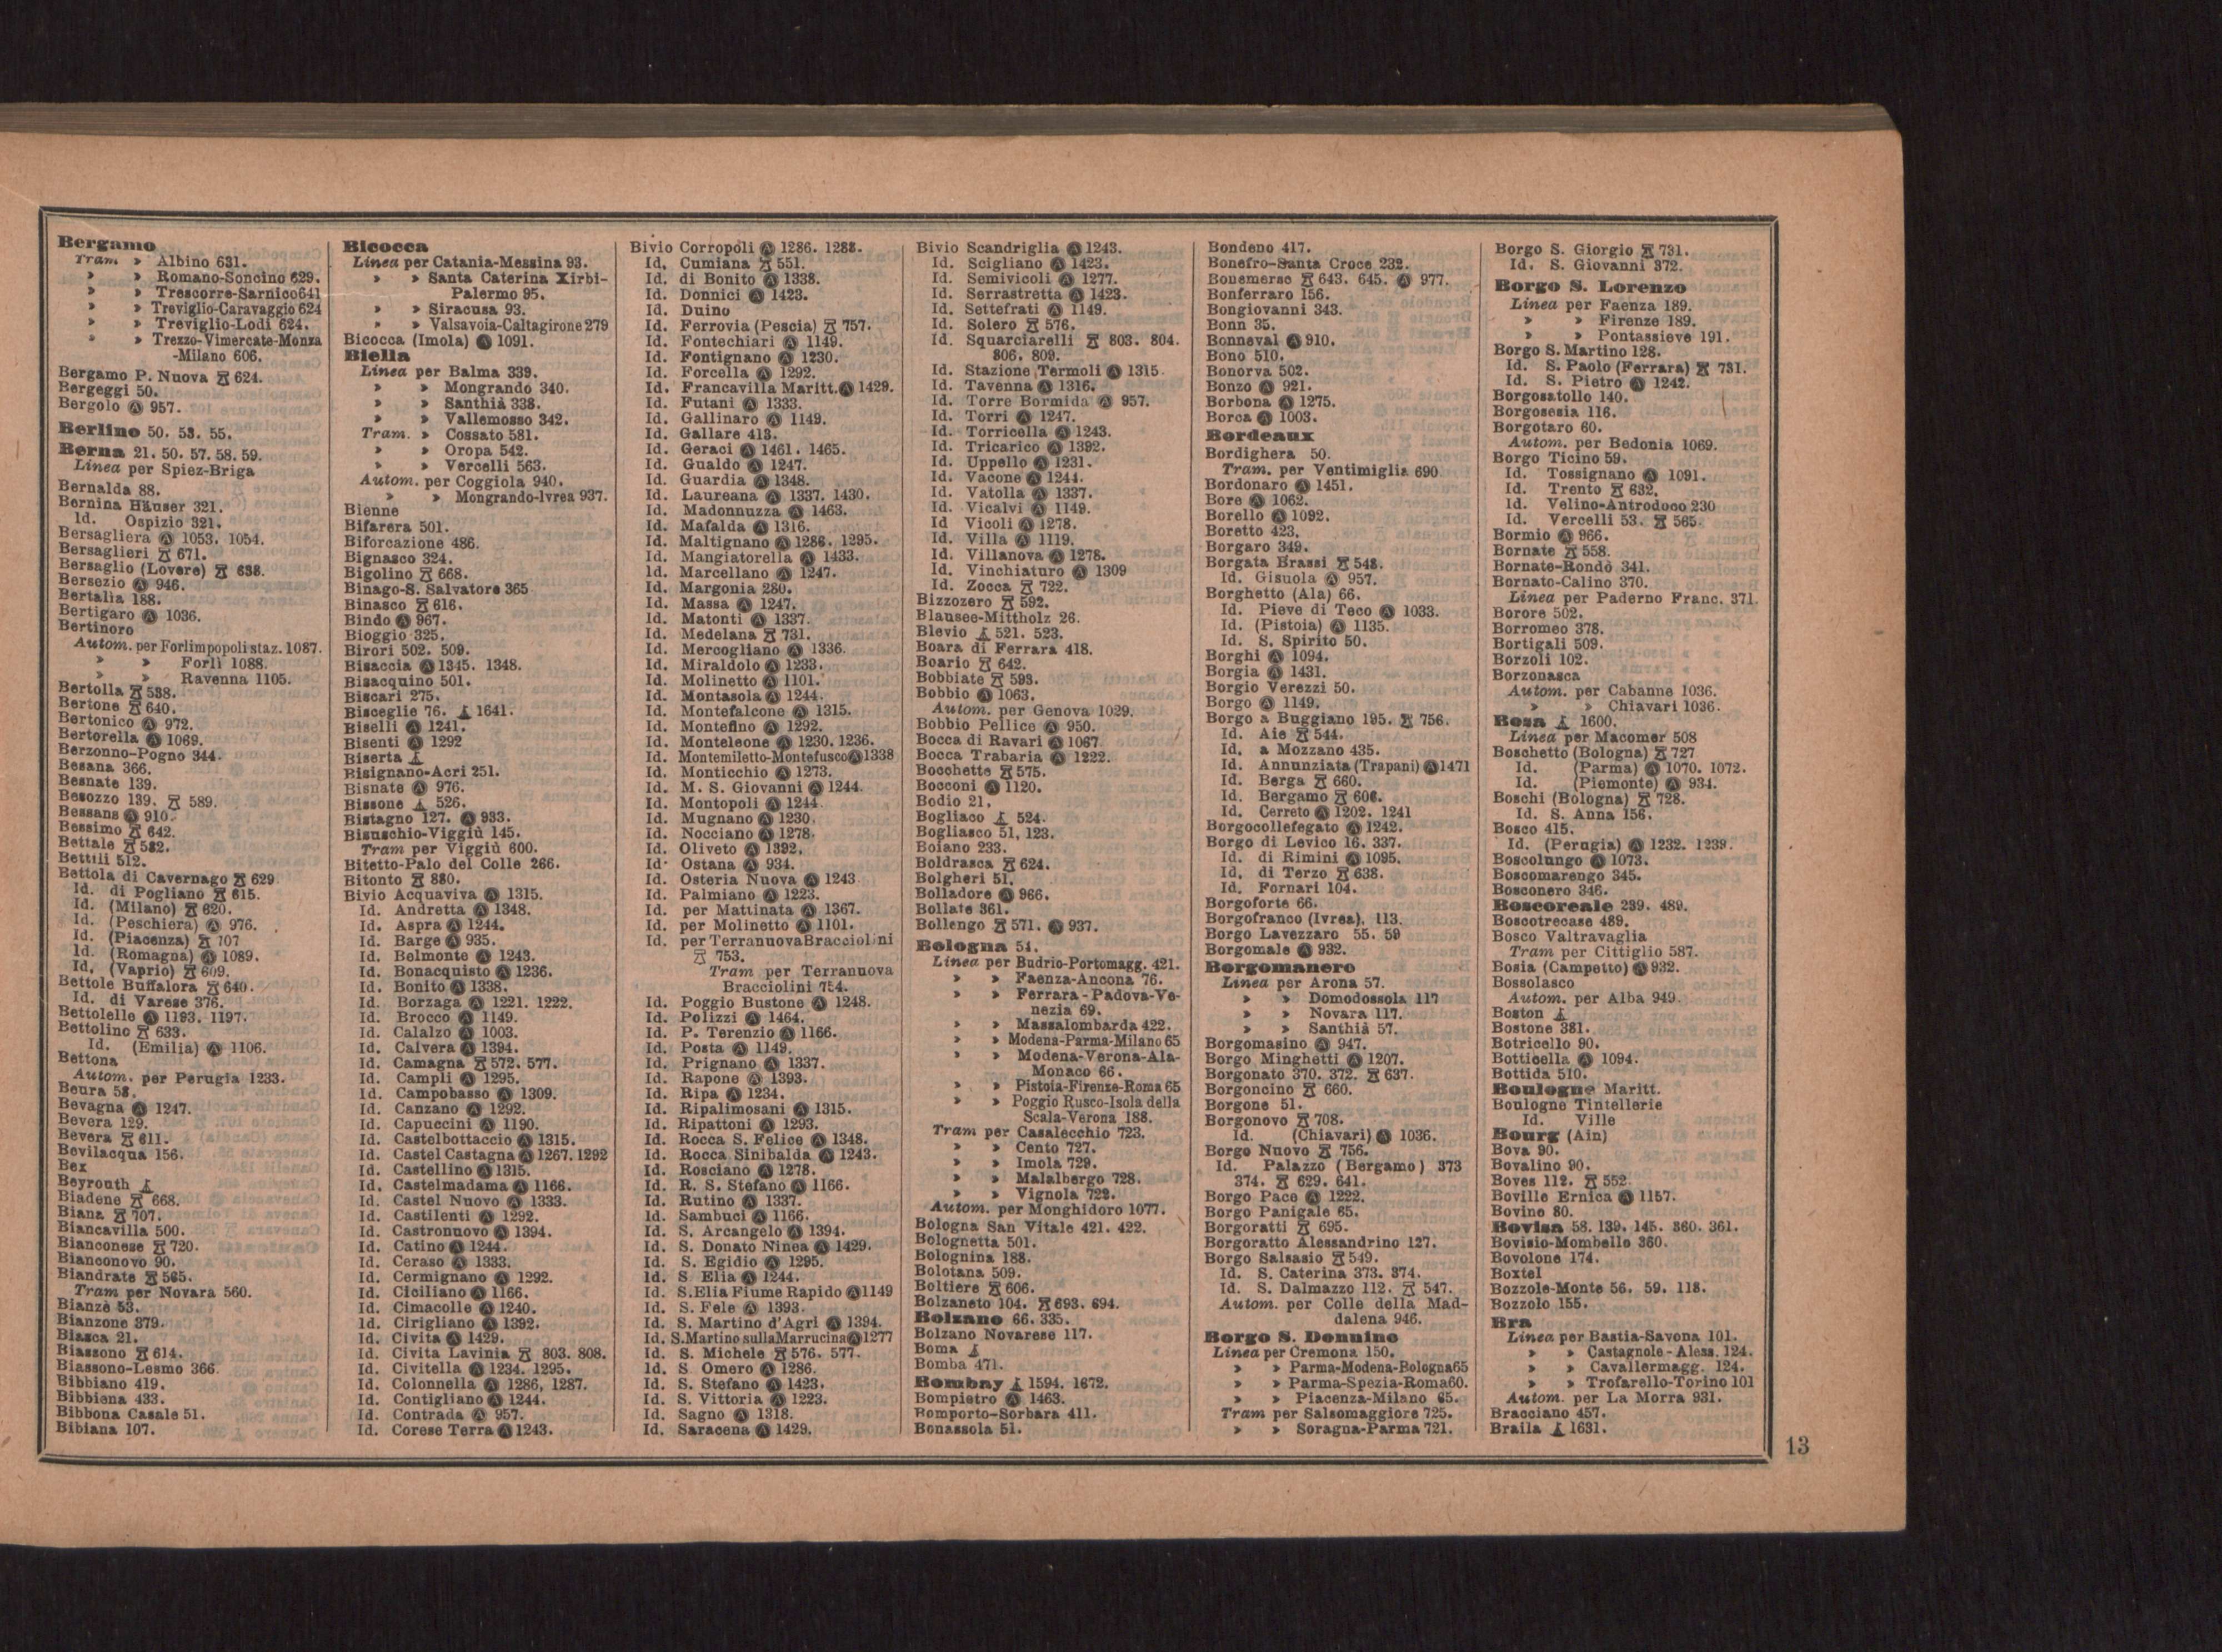 Bergamo
Tram » Albino 631.
» » Romano-Soncino 629.
» » Trescorre-Sarnico 641
» » Treviglio-Caravaggio 624
» » Treviglio-Lodi 624.
» » Trezzo-Vimercate-Monza
-Milano 606.
Bergamo P. Nuova 624.
Bergeggi 50.
Bergolo Ⓐ 957.
Berlino 50. 53. 55.
Berna 21. 50. 57. 58. 59.
Linea per Spiez-Briga
Bernalda 88.
Bernina Häuser 321.
Id. Ospizio 321.
Bersagliera Ⓐ 1053. 1054.
Bersaglieri 671.
Bersaglio (Lovere) 638.
Bersezio Ⓐ 946.
Bertalia 188.
Bertigaro Ⓐ 1036.
Bertinoro
Autom. per Forlimpopoli staz. 1087.
» » Forlì 1088.
» » Ravenna 1105.
Bertolla 538.
Bertone 640.
Bertonico Ⓐ 972.
Bertorella Ⓐ 1069.
Berzonno-Pogno 344.
Besana 366.
Besnate 139.
Besozzo 139. 589.
Bessans Ⓐ 910.
Bessimo 642.
Bettale 582.
Bettili 512.
Bettola di Cavernago 629
Id. di Pogliano 615.
Id. (Milano) 620.
Id. (Peschiera) Ⓐ 976.
Id. (Piacenza) 707
Id. (Romagna) Ⓐ 1089.
Id. (Vaprio) 609.
Bettole Buffalora 640.
Id. di Varese 376.
Bettolelle Ⓐ 1193. 1197.
Bettolino 633.
Id. (Emilia) Ⓐ 1106.
Bettona
Autom. per Perugia 1233.
Beura 58.
Bevagna Ⓐ 1247.
Bevera 129.
Bevera 611.
Bevilacqua 156.
Bex
Beyrouth
Biadene 668.
Biana 707.
Biancavilla 500.
Bianconese 720.
Bianconovo 90.
Biandrate 565.
Tram per Novara 560.
Bianzè 53.
Bianzone 379.
Biasca 21.
Biassono 614.
Biassono-Lesmo 366.
Bibbiano 419.
Bibbiena 433.
Bibbona Casale 51.
Bibiana 107.
Bicocca
Linea per Catania-Messina 93.
» » Santa Caterina Xirbi-
Palermo 95.
» » Siracusa 93.
» » Valsavoia-Caltagirone 279
Bicocca (Imola) Ⓐ 1091.
Biella
Linea per Balma 339.
» » Mongrando 340.
» » Santhià 338.
» » Vallemosso 342.
Tram. » Cossato 581.
» » Oropa 542.
» » Vercelli 563.
Autom. per Coggiola 940.
» » Mongrando-Ivrea 937.
Bienne
Bifarera 501.
Biforcazione 486.
Bignasco 324.
Bigolino 668.
Binago-S. Salvatore 365
Binasco 616.
Bindo Ⓐ 967.
Bioggio 325.
Birori 502. 509.
Bisaccia Ⓐ 1345. 1348.
Bisacquino 501.
Biscari 275.
Bisceglie 76. 1641.
Biselli Ⓐ 1241.
Bisenti Ⓐ 1292
Biserta
Bisignano-Acri 251.
Bisnate Ⓐ 976.
Bissone 526.
Bistagno 127. Ⓐ 933.
Bisuschio-Viggiù 145.
Tram per Viggiù 600.
Bitetto-Palo del Colle 266.
Bitonto 880.
Bivio Acquaviva Ⓐ 1315.
Id. Andretta Ⓐ 1348.
Id. Aspra Ⓐ 1244.
Id. Barge Ⓐ 935.
Id. Belmonte Ⓐ 1243.
Id. Bonacquisto Ⓐ 1236.
Id. Bonito Ⓐ 1338.
Id. Borzaga Ⓐ 1221. 1222.
Id. Brocco Ⓐ 1149.
Id. Calalzo Ⓐ 1003.
Id. Calvera Ⓐ 1394.
Id. Camagna 572. 577.
Id. Campli Ⓐ 1295.
Id. Campobasso Ⓐ 1309.
Id. Canzano Ⓐ 1292.
Id. Capuccini Ⓐ 1190.
Id. Castelbottaccio Ⓐ 1315.
Id. Castel Castagna Ⓐ 1267. 1292
Id. Castellino Ⓐ 1315.
Id. Castelmadama Ⓐ 1166.
Id. Castel Nuovo Ⓐ 1333.
Id. Castilenti Ⓐ 1292.
Id. Castronuovo Ⓐ 1394.
Id. Catino Ⓐ 1244.
Id. Ceraso Ⓐ 1333.
Id. Cermignano Ⓐ 1292.
Id. Ciciliano Ⓐ 1166.
Id. Cimacolle Ⓐ 1240.
Id. Cirigliano Ⓐ 1392.
Id. Civita Ⓐ 1429.
Id. Civita Lavinia 803. 808.
Id. Civitella Ⓐ 1234. 1295.
Id. Colonnella Ⓐ 1286, 1287.
Id. Contigliano Ⓐ 1244.
Id. Contrada Ⓐ 957.
Id. Corese Terra Ⓐ 1243.
Bivio Corropoli Ⓐ 1286. 1288.
Id. Cumiana 551.
Id. di Bonito Ⓐ 1338.
Id. Donnici Ⓐ 1423.
Id. Duino
Id. Ferrovia (Pescia) 757.
Id. Fontechiari Ⓐ 1149.
Id. Fontignano Ⓐ 1230.
Id. Forcella Ⓐ 1292.
Id. Francavilla Maritt. Ⓐ 1429.
Id. Futani Ⓐ 1333.
Id. Gallinaro Ⓐ 1149.
Id. Gallare 413.
Id. Geraci Ⓐ 1461. 1465.
Id. Gualdo Ⓐ 1247.
Id. Guardia Ⓐ 1348.
Id. Laureana Ⓐ 1337. 1430.
Id. Madonnuzza Ⓐ 1463.
Id. Mafalda Ⓐ 1316.
Id. Maltignano Ⓐ 1286. 1295.
Id. Mangiatorella Ⓐ 1433.
Id. Marcellano Ⓐ 1247.
Id. Margonia 280.
Id. Massa Ⓐ 1247.
Id. Matonti Ⓐ 1337.
Id. Medelana 731.
Id. Mercogliano Ⓐ 1336.
Id. Miraldolo Ⓐ 1233.
Id. Molinetto Ⓐ 1101.
Id. Montasola Ⓐ 1244.
Id. Montefalcone Ⓐ 1315.
Id. Montefino Ⓐ 1292.
Id. Monteleone Ⓐ 1230. 1236.
Id. Montemiletto-Montefusco Ⓐ 1338
Id. Monticchio Ⓐ 1273.
Id. M. S. Giovanni Ⓐ 1244.
Id. Montopoli Ⓐ 1244.
Id. Mugnano Ⓐ 1230.
Id. Nocciano Ⓐ 1278.
Id. Oliveto Ⓐ 1392.
Id. Ostana Ⓐ 934.
Id. Osteria Nuova Ⓐ 1243
Id. Palmiano Ⓐ 1223.
Id. per Mattinata Ⓐ 1367.
Id. per Molinetto Ⓐ 1101.
Id. per Terranuova Bracciolini
753.
Tram per Terranuova
Bracciolini 754.
Id. Poggio Bustone Ⓐ 1248.
Id. Polizzi Ⓐ 1464.
Id. P. Terenzio Ⓐ 1166.
Id. Posta Ⓐ 1149.
Id. Prignano Ⓐ 1337.
Id. Rapone Ⓐ 1393.
Id. Ripa Ⓐ 1234.
Id. Ripalimosani Ⓐ 1315.
Id. Ripattoni Ⓐ 1293.
Id. Rocca S. Felice Ⓐ 1348.
Id. Rocca Sinibalda Ⓐ 1243.
Id. Rosciano Ⓐ 1278.
Id. R. S. Stefano Ⓐ 1166.
Id. Rutino Ⓐ 1337.
Id. Sambuci Ⓐ 1166.
Id. S. Arcangelo Ⓐ 1394.
Id. S. Donato Ninea Ⓐ 1429.
Id. S. Egidio Ⓐ 1295.
Id. S Elia Ⓐ 1244.
Id. S. Elia Fiume Rapido Ⓐ 1149
Id. S. Fele Ⓐ 1393.
Id. S. Martino d'Agri Ⓐ 1394.
Id. S. Martino sulla Marrucina Ⓐ 1277
Id. S. Michele 576. 577.
Id. S. Omero Ⓐ 1286.
Id. S. Stefano Ⓐ 1423.
Id. S. Vittoria Ⓐ 1223.
Id. Sagno Ⓐ 1318.
Id. Saracena Ⓐ 1429.
Bivio Scandriglia Ⓐ 1243.
Id. Scigliano Ⓐ 1423.
Id. Semivicoli Ⓐ 1277.
Id. Serrastretta Ⓐ 1423.
Id. Settefrati Ⓐ 1149.
Id. Solero 576.
Id. Squarciarelli 803. 804.
806. 809.
Id. Stazione Termoli Ⓐ 1315.
Id. Tavenna Ⓐ 1316.
Id. Torre Bormida Ⓐ 957.
Id. Torri Ⓐ 1247.
Id. Torricella Ⓐ 1243.
Id. Tricarico Ⓐ 1392.
Id. Uppello Ⓐ 1231.
Id. Vacone Ⓐ 1244.
Id. Vatolla Ⓐ 1337.
Id. Vicalvi Ⓐ 1149.
Id Vicoli Ⓐ 1278.
Id. Villa Ⓐ 1119.
Id. Villanova Ⓐ 1278.
Id. Vinchiaturo Ⓐ 1309
Id. Zocca 722.
Bizzozero 592.
Blausee-Mittholz 26.
Blevio 521. 523.
Boara di Ferrara 418.
Boario 642.
Bobbiate 593.
Bobbio Ⓐ 1063.
Autom. per Genova 1029.
Bobbio Pellice Ⓐ 950.
Bocca di Ravari Ⓐ 1067.
Bocca Trabaria Ⓐ 1222.
Bocchette 575.
Bocconi Ⓐ 1120.
Bodio 21.
Bogliaco 524.
Bogliasco 51, 123.
Boiano 233.
Boldrasca 624.
Bolgheri 51.
Bolladore Ⓐ 966.
Bollate 361.
Bollengo 571. Ⓐ 937.
Bologna 54.
Linea per Budrio-Portomagg. 421.
» » Faenza-Ancona 76.
» » Ferrara-Padova-Ve-
nezia 69.
» » Massalombarda 422.
» » Modena-Parma-Milano 65
» » Modena-Verona-Ala-
Monaco 66.
» » Pistoia-Firenze-Roma 65
» » Poggio Rusco-Isola della
Scala-Verona 188.
Tram per Casalecchio 723.
» » Cento 727.
» » Imola 729.
» » Malalbergo 728.
» » Vignola 722.
Autom. per Monghidoro 1077.
Bologna San Vitale 421. 422.
Bolognetta 501.
Bolognina 188.
Bolotana 509.
Boltiere 606.
Bolzaneto 104. 693. 694.
Bolzano 66. 335.
Bolzano Novarese 117.
Boma
Bomba 471.
Bombay 1594. 1672.
Bompietro Ⓐ 1463.
Bomporto-Sorbara 411.
Bonassola 51.
Bondeno 417.
Bonefro-Santa Croce 232.
Bonemerse 643. 645. Ⓐ 977.
Bonferraro 156.
Bongiovanni 343.
Bonn 35.
Bonneval Ⓐ 910.
Bono 510.
Bonorva 502.
Bonzo Ⓐ 921.
Borbona Ⓐ 1275.
Borca Ⓐ 1003.
Bordeaux
Bordighera 50.
Tram. per Ventimiglia 690
Bordonaro Ⓐ 1451.
Bore Ⓐ 1062.
Borello Ⓐ 1092.
Boretto 423.
Borgaro 349.
Borgata Brassi 548.
Id. Gisuola Ⓐ 957.
Borghetto (Ala) 66.
Id. Pieve di Teco Ⓐ 1033.
Id. (Pistoia) Ⓐ 1135.
Id. S. Spirito 50.
Borghi Ⓐ 1094.
Borgia Ⓐ 1431.
Borgio Verezzi 50.
Borgo Ⓐ 1149.
Borgo a Buggiano 195. 756.
Id. Aie 544.
Id. a Mozzano 435.
Id. Annunziata (Trapani) Ⓐ 1471
Id. Berga 660.
Id. Bergamo 606.
Id. Cerreto Ⓐ 1202. 1241
Borgocollefegato Ⓐ 1242.
Borgo di Levico 16. 337.
Id. di Rimini Ⓐ 1095.
Id. di Terzo 638.
Id. Fornari 104.
Borgoforte 66.
Borgofranco (Ivrea). 113.
Borgo Lavezzaro 55. 59
Borgomale Ⓐ 932.
Borgomanero
Linea per Arona 57.
» » Domodossola 117
» » Novara 117.
» » Santhià 57.
Borgomasino Ⓐ 947.
Borgo Minghetti Ⓐ 1207.
Borgonato 370. 372. 637.
Borgoncino 660.
Borgone 51.
Borgonovo 708.
Id. (Chiavari) Ⓐ 1036.
Borgo Nuovo 756.
Id. Palazzo (Bergamo) 373
374. 629. 641.
Borgo Pace Ⓐ 1222.
Borgo Panigale 65.
Borgoratti 695.
Borgoratto Alessandrino 127.
Borgo Salsasio 549.
Id. S. Caterina 373. 374.
Id. S. Dalmazzo 112. 547.
Autom. per Colle della Mad-
dalena 946.
Borgo S. Donnino
Linea per Cremona 150.
» » Parma-Modena-Bologna 65
» » Parma-Spezia-Roma 60.
» » Piacenza-Milano 65.
Tram per Salsomaggiore 725.
» » Soragna-Parma 721.
Borgo S. Giorgio 731.
Id. S. Giovanni 372.
Borgo S. Lorenzo
Linea per Faenza 189.
» » Firenze 189.
» » Pontassieve 191.
Borgo S. Martino 128.
Id. S. Paolo (Ferrara) 731.
Id. S. Pietro Ⓐ 1242.
Borgosatollo 140.
Borgosesia 116.
Borgotaro 60.
Autom. per Bedonia 1069.
Borgo Ticino 59.
Id. Tossignano Ⓐ 1091.
Id. Trento 632.
Id. Velino-Antrodoco 230
Id. Vercelli 53. 565.
Bormio Ⓐ 966.
Bornate 558.
Bornate-Rondò 341.
Bornato-Calino 370.
Linea per Paderno Franc. 371.
Borore 502.
Borromeo 378.
Bortigali 509.
Borzoli 102.
Borzonasca
Autom. per Cabanne 1036.
» » Chiavari 1036.
Bosa 1600.
Linea per Macomer 508
Boschetto (Bologna) 727
Id. (Parma) Ⓐ 1070. 1072.
Id. (Piemonte) Ⓐ 934.
Boschi (Bologna) 728.
Id. S. Anna 156.
Bosco 415.
Id. (Perugia) Ⓐ 1232. 1239.
Boscolungo Ⓐ 1073.
Boscomarengo 345.
Bosconero 346.
Boscoreale 239. 489.
Boscotrecase 489.
Bosco Valtravaglia
Tram per Cittiglio 587.
Bosia (Campetto) Ⓐ 932.
Bossolasco
Autom. per Alba 949.
Boston
Bostone 381.
Botricello 90.
Botticella Ⓐ 1094.
Bottida 510.
Boulogne Maritt.
Boulogne Tintellerie
Id. Ville
Bourg (Ain)
Bova 90.
Bovalino 90.
Boves 112. 552
Boville Ernica Ⓐ 1157.
Bovino 80.
Bovisa 58. 139. 145. 360. 361.
Bovisio-Mombello 360.
Bovolone 174.
Boxtel
Bozzole-Monte 56. 59. 118.
Bozzolo 155.
Bra
Linea per Bastia-Savona 101.
» » Castagnole-Aless. 124.
» » Cavallermagg. 124.
» » Trofarello-Torino 101
Autom. per La Morra 931.
Bracciano 457.
Braila 1631.
13